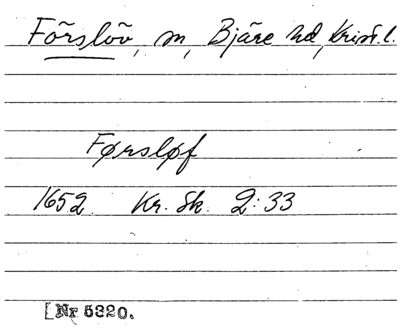 Förslöv, sn, Bjäre hd, Krist. l.
Førsløf
1652. Kr. Sk. 2:33
[Nr 5320.